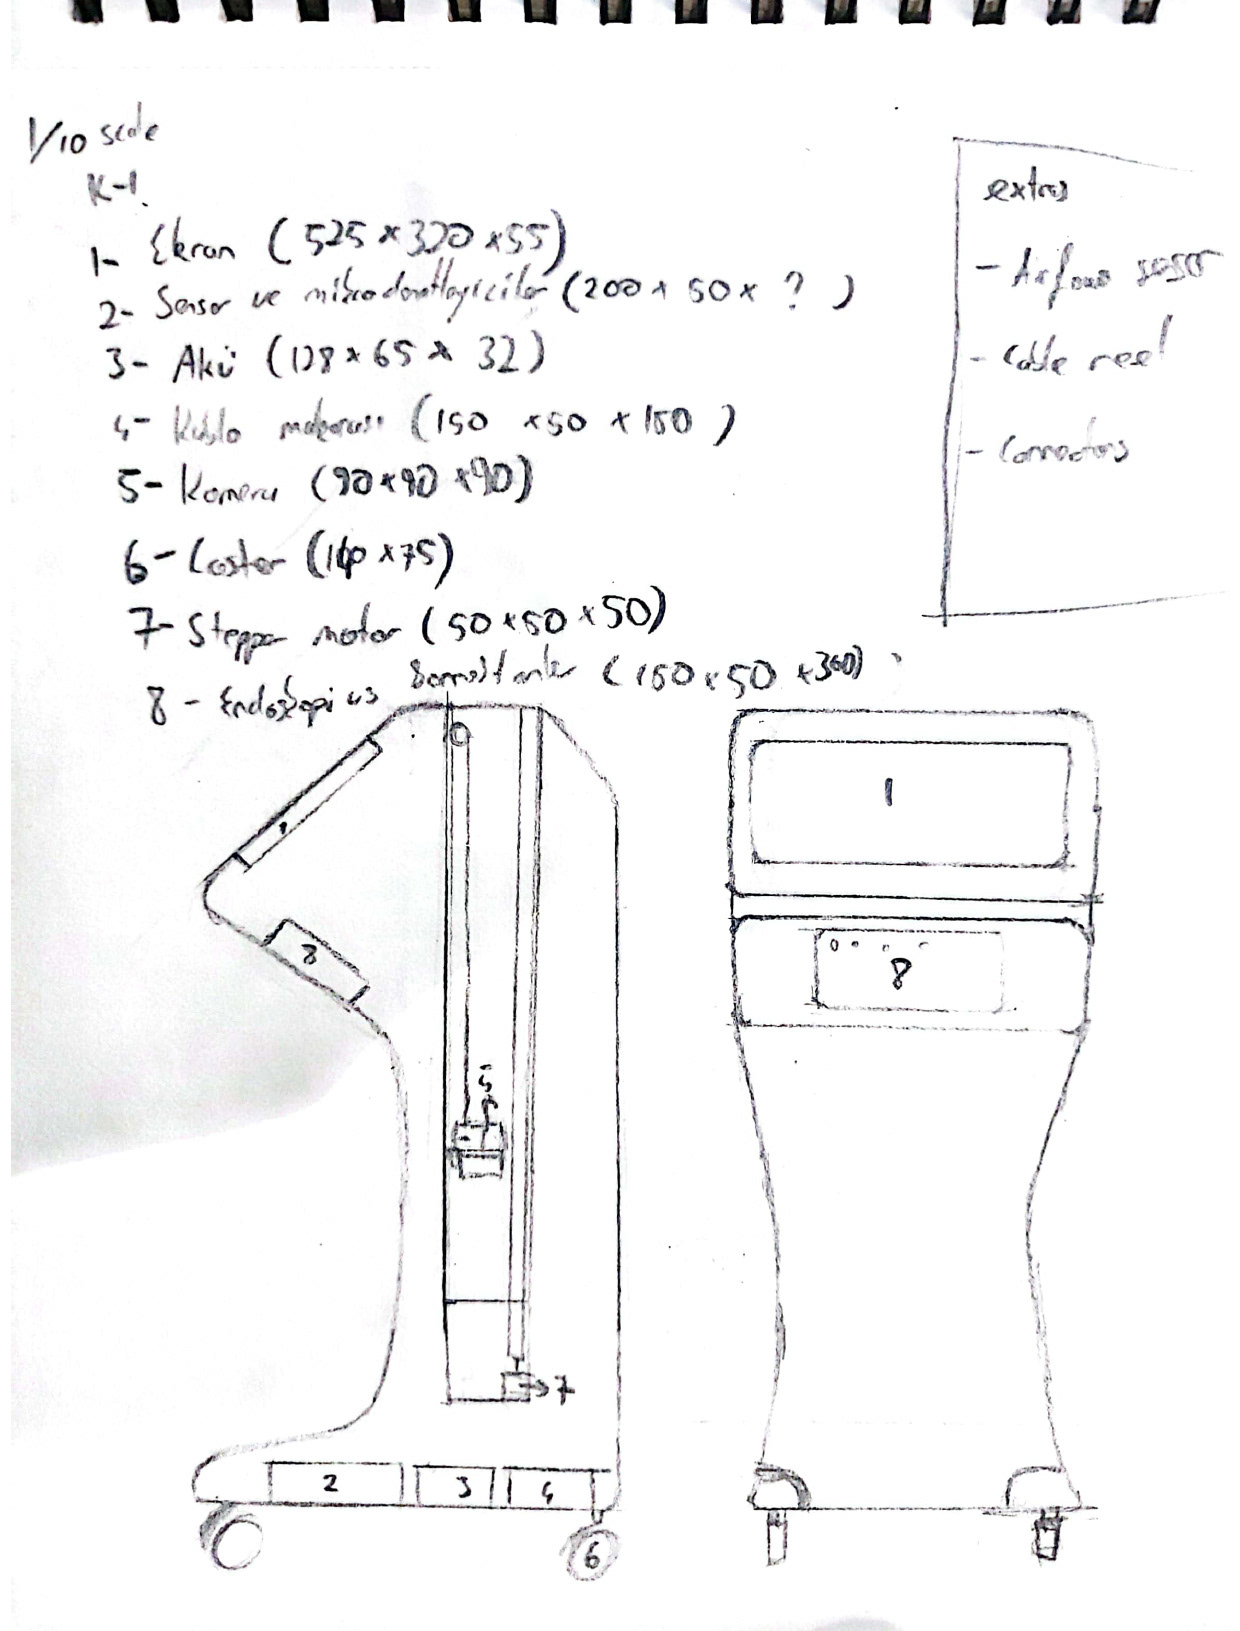 1/10 scale
K-1.
1- Ekran (525 x 320 x 55)
2- Sensor ve mikrodenetleyiciler (200 x 50 x ? )
3- Akü (128 x 65 x 32)
4- Kablo makarası (150 x 50 x 150 )
5- Kamera (90 x 90 x 90)
6- Caster (140 x 75)
7- Stepper motor ( 50 x 50 x 50)
8 - Endoskopi (150 x 50 x 300)
extras
- Airflow sensor
- Cable reel
- Connectors
1
8
5
7
2
3
4
6
1
8